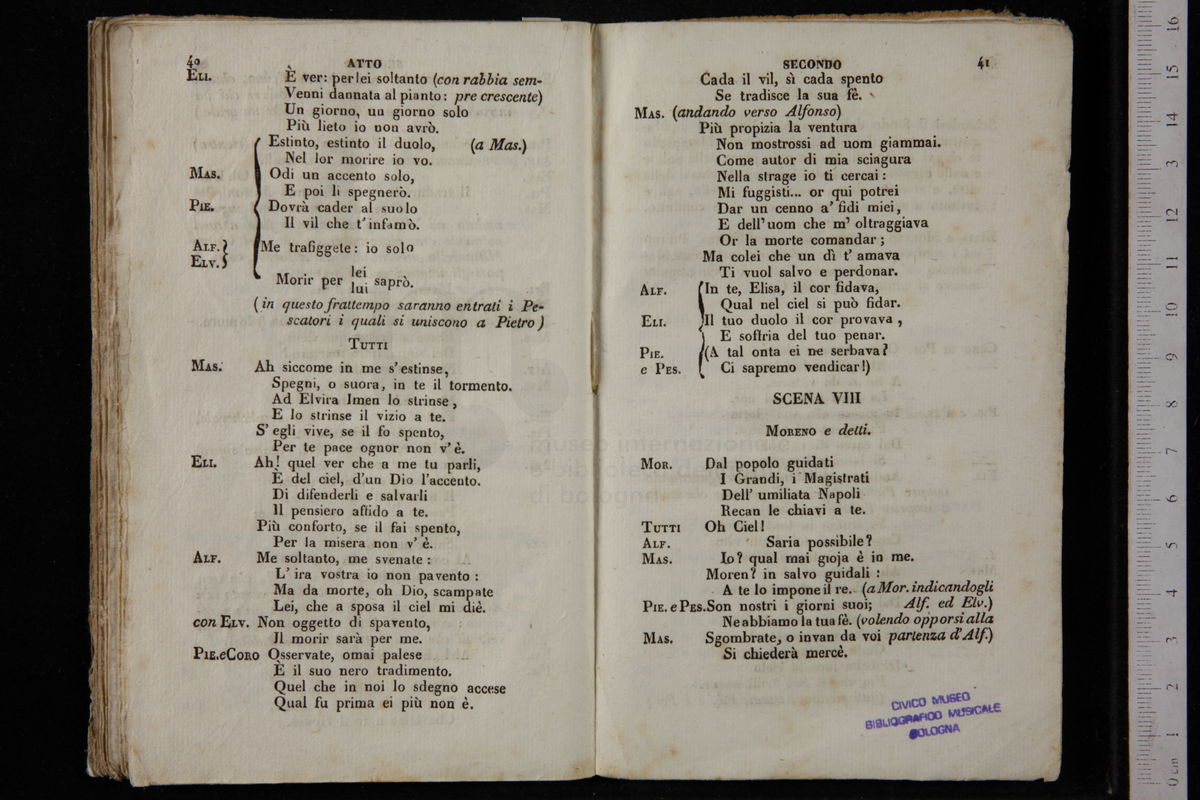 40
ATTO
ELI. È ver: per lei soltanto (con rabbia sem-
Venni dannata al pianto: pre crescente)
Un giorno, un giorno solo
Più lieto io non avrò.
Estinto, estinto il duolo, (a Mas.)
Nel lor morire io vo.
MAS. Odi un accento solo,
E poi li spegnerò.
PIE. Dovrà cader al suolo
Il vil che t'infamò.
ALF. Me trafiggete: io solo
ELV.
Morir per lei lui saprò.
(in questo frattempo saranno entrati i Pe-
scatori i quali si uniscono a Pietro)
TUTTI
MAS. Ah siccome in me s'estinse,
Spegni, o suora, in te il tormento.
Ad Elvira Imen lo strinse,
E lo strinse il vizio a te.
S'egli vive, se il fo spento,
Per te pace ognor non v'è.
ELI. Ah! quel ver che a me tu parli,
È del ciel, d'un Dio l'accento.
Di difenderli e salvarli
Il pensiero affido a te.
Più conforto, se il fai spento,
Per la misera non v'è.
ALF. Me soltanto, me svenate:
L'ira vostra io non pavento:
Ma da morte, oh Dio, scampate
Lei, che a sposa il ciel mi diè.
con ELV. Non oggetto di spavento,
Il morir sarà per me.
PIE. e CORO Osservate, omai palese
È il suo nero tradimento.
Quel che in noi lo sdegno accese
Qual fu prima ei più non è.
SECONDO
41
Cada il vil, sì cada spento
Se tradisce la sua fè.
MAS. (andando verso Alfonso)
Più propizia la ventura
Non mostrossi ad uom giammai.
Come autor di mia sciagura
Nella strage io ti cercai:
Mi fuggisti... or qui potrei
Dar un cenno a' fidi miei,
E dell'uom che m'oltraggiava
Or la morte comandar;
Ma colei che un dì t'amava
Ti vuol salvo e perdonar.
ALF. In te, Elisa, il cor fidava,
Qual nel ciel si può fidar.
ELI. Il tuo duolo il cor provava,
E soffria del tuo penar.
PIE. (A tal onta ei ne serbava?
e PES. Ci sapremo vendicar!)
SCENA VIII
MORENO e detti.
MOR. Dal popolo guidati
I Grandi, i Magistrati
Dell'umiliata Napoli
Recan le chiavi a te.
TUTTI Oh Ciel!
ALF. Saria possibile?
MAS. Io? qual mai gioja è in me.
Moren? in salvo guidali:
A te lo impone il re. (a Mor. indicandogli
PIE. e PES. Son nostri i giorni suoi; Alf. ed Elv.)
Ne abbiamo la tua fè. (volendo opporsi alla
MAS. Sgombrate, o invan da voi partenza d'Alf.)
Si chiederà mercè.
CIVICO MUSEO
BIBLIOGRAFICO MUSICALE
BOLOGNA
museo internazionale
e biblioteca de
di bologna
0 cm 1 2 3 4 5 6 7 8 9 10 11 12 13 14 15 16